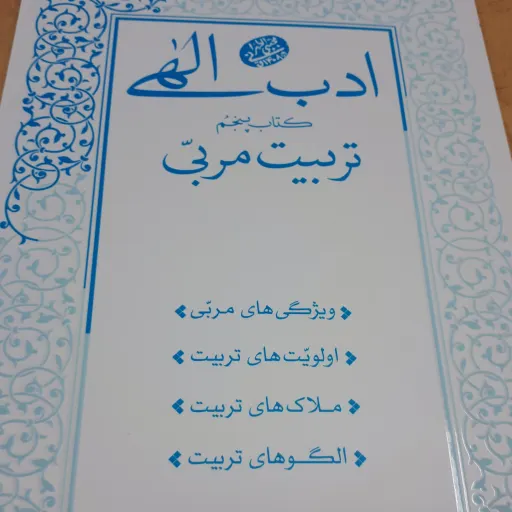 ادب الهی
کتاب پنجم
تربیت مربّی
ویژگی‌های مربّی
اولویّت‌های تربیت
ملاک‌های تربیت
الگوهای تربیت